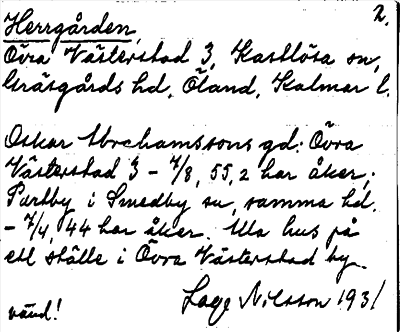 2.
Herrgården,
Övra Västerstad 3, Kastlösa sn,
Gräsgårds hd, Öland, Kalmar l.
Oskar Abrahamssons gd: Övra
Västerstad 3 - 7/8, 55,2 har åker;
Parteby i Smedby sn, samma hd.
- 7/4, 44 har åker. Alla hus på
ett ställe i Övra Västerstad by.
Lage Nilsson 1931
vänd!